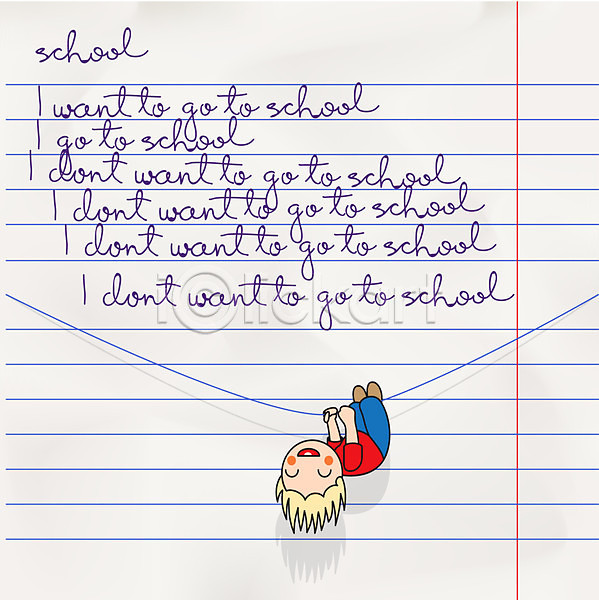 school
I want to go to school
I go to school
I dont want to go to school
I dont want to go to school
I dont want to go to school
I dont want to go to school
iclickart